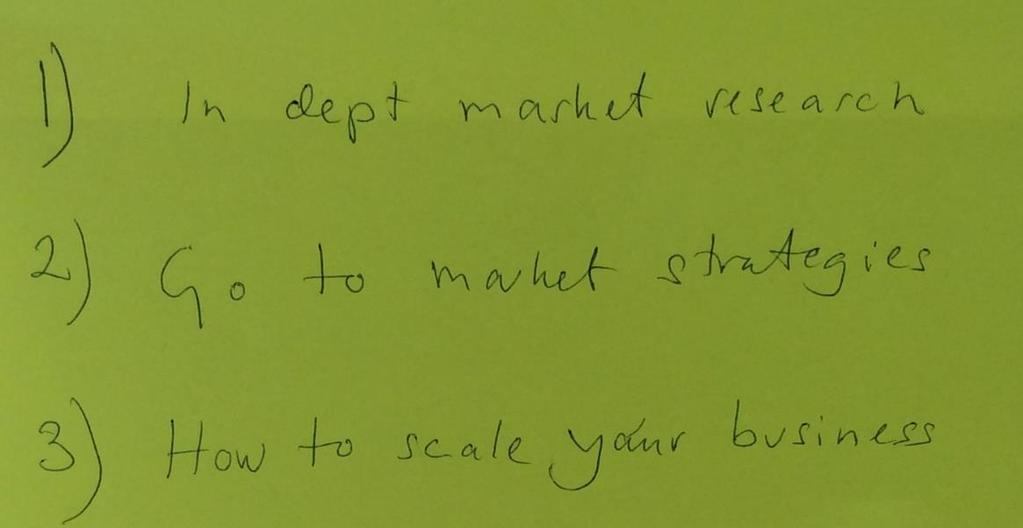 1) In dept market research
2) Go to market strategies
3) How to scale your business